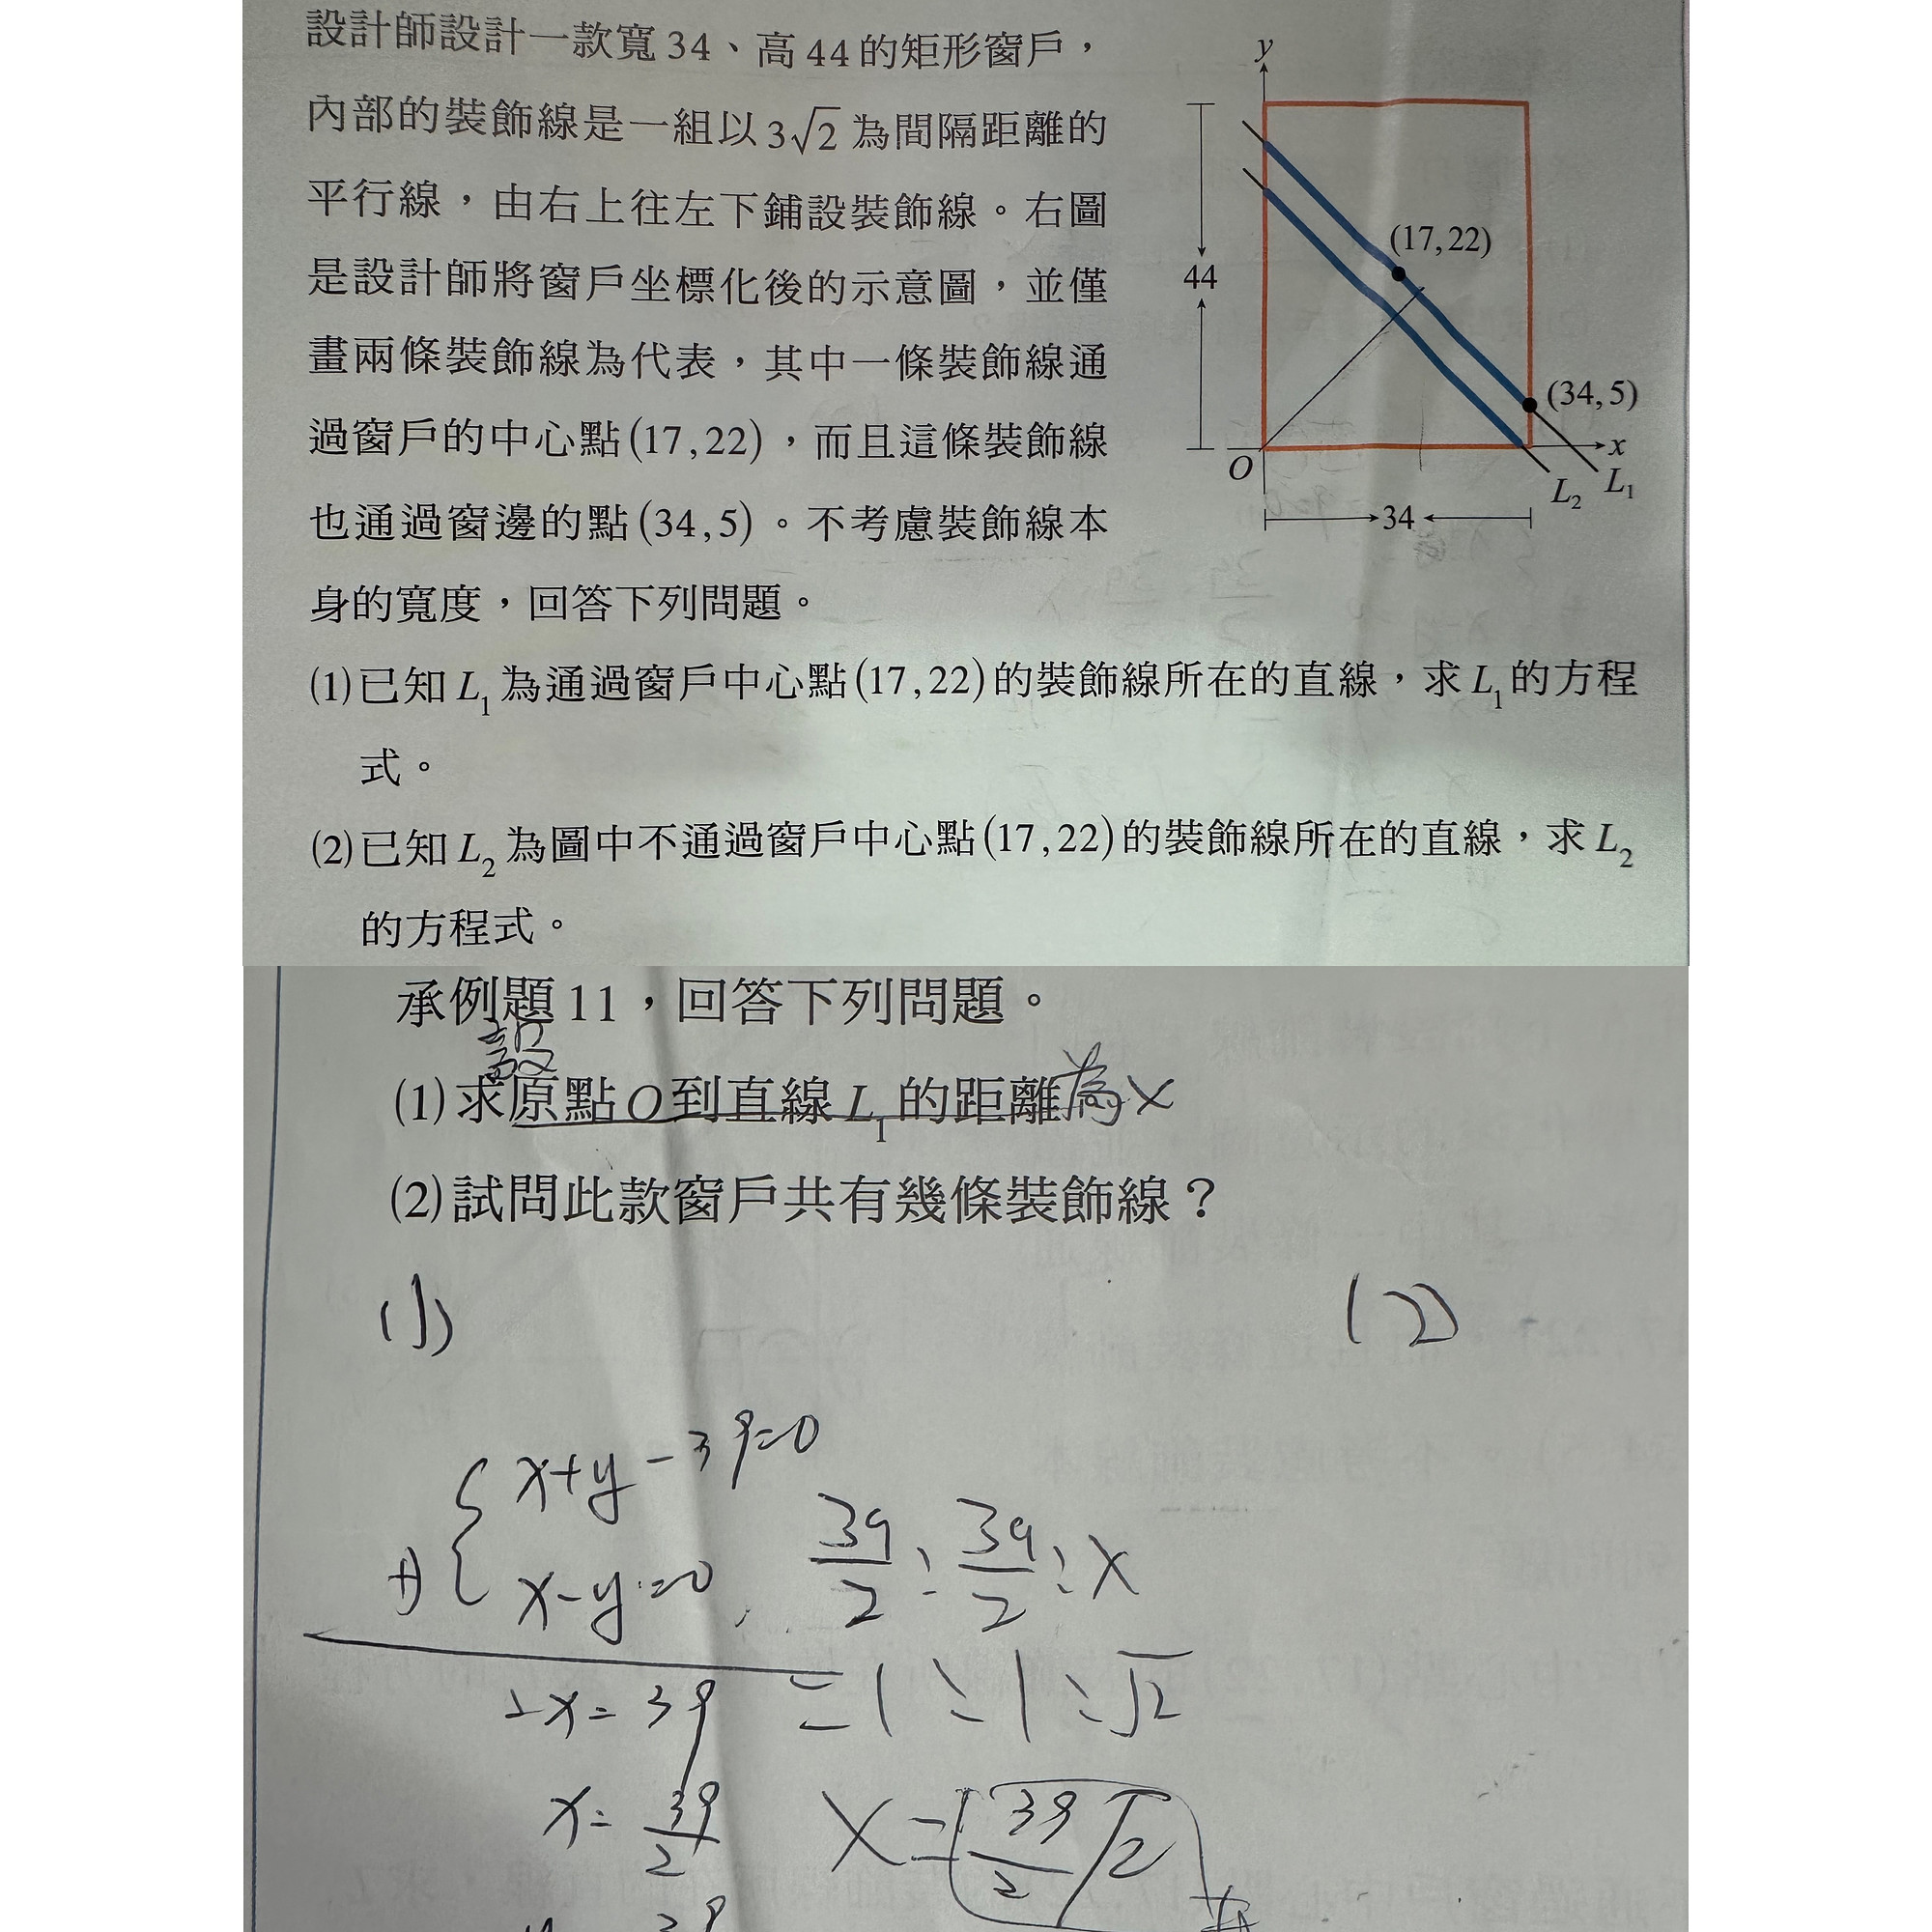 設計師設計一款寬34、高44的矩形窗戶，
內部的裝飾線是一組以3√2為間隔距離的
平行線，由右上往左下鋪設裝飾線。右圖
是設計師將窗戶坐標化後的示意圖，並僅
畫兩條裝飾線為代表，其中一條裝飾線通
過窗戶的中心點(17,22)，而且這條裝飾線
也通過窗邊的點(34,5)。不考慮裝飾線本
身的寬度，回答下列問題。
y
(17,22)
44
(34,5)
x
O
L₂
L₁
34
(1)已知L₁為通過窗戶中心點(17,22)的裝飾線所在的直線，求L₁的方程
式。
(2)已知L₂為圖中不通過窗戶中心點(17,22)的裝飾線所在的直線，求L₂
的方程式。
承例題11，回答下列問題。
設
(1)求原點O到直線L₁的距離為x
(2)試問此款窗戶共有幾條裝飾線？
(1)
(2)
x+y-39=0
+) x-y=0
39/2:39/2:x
2x=39
=1:1:√2
x=39/2
x=39/2√2